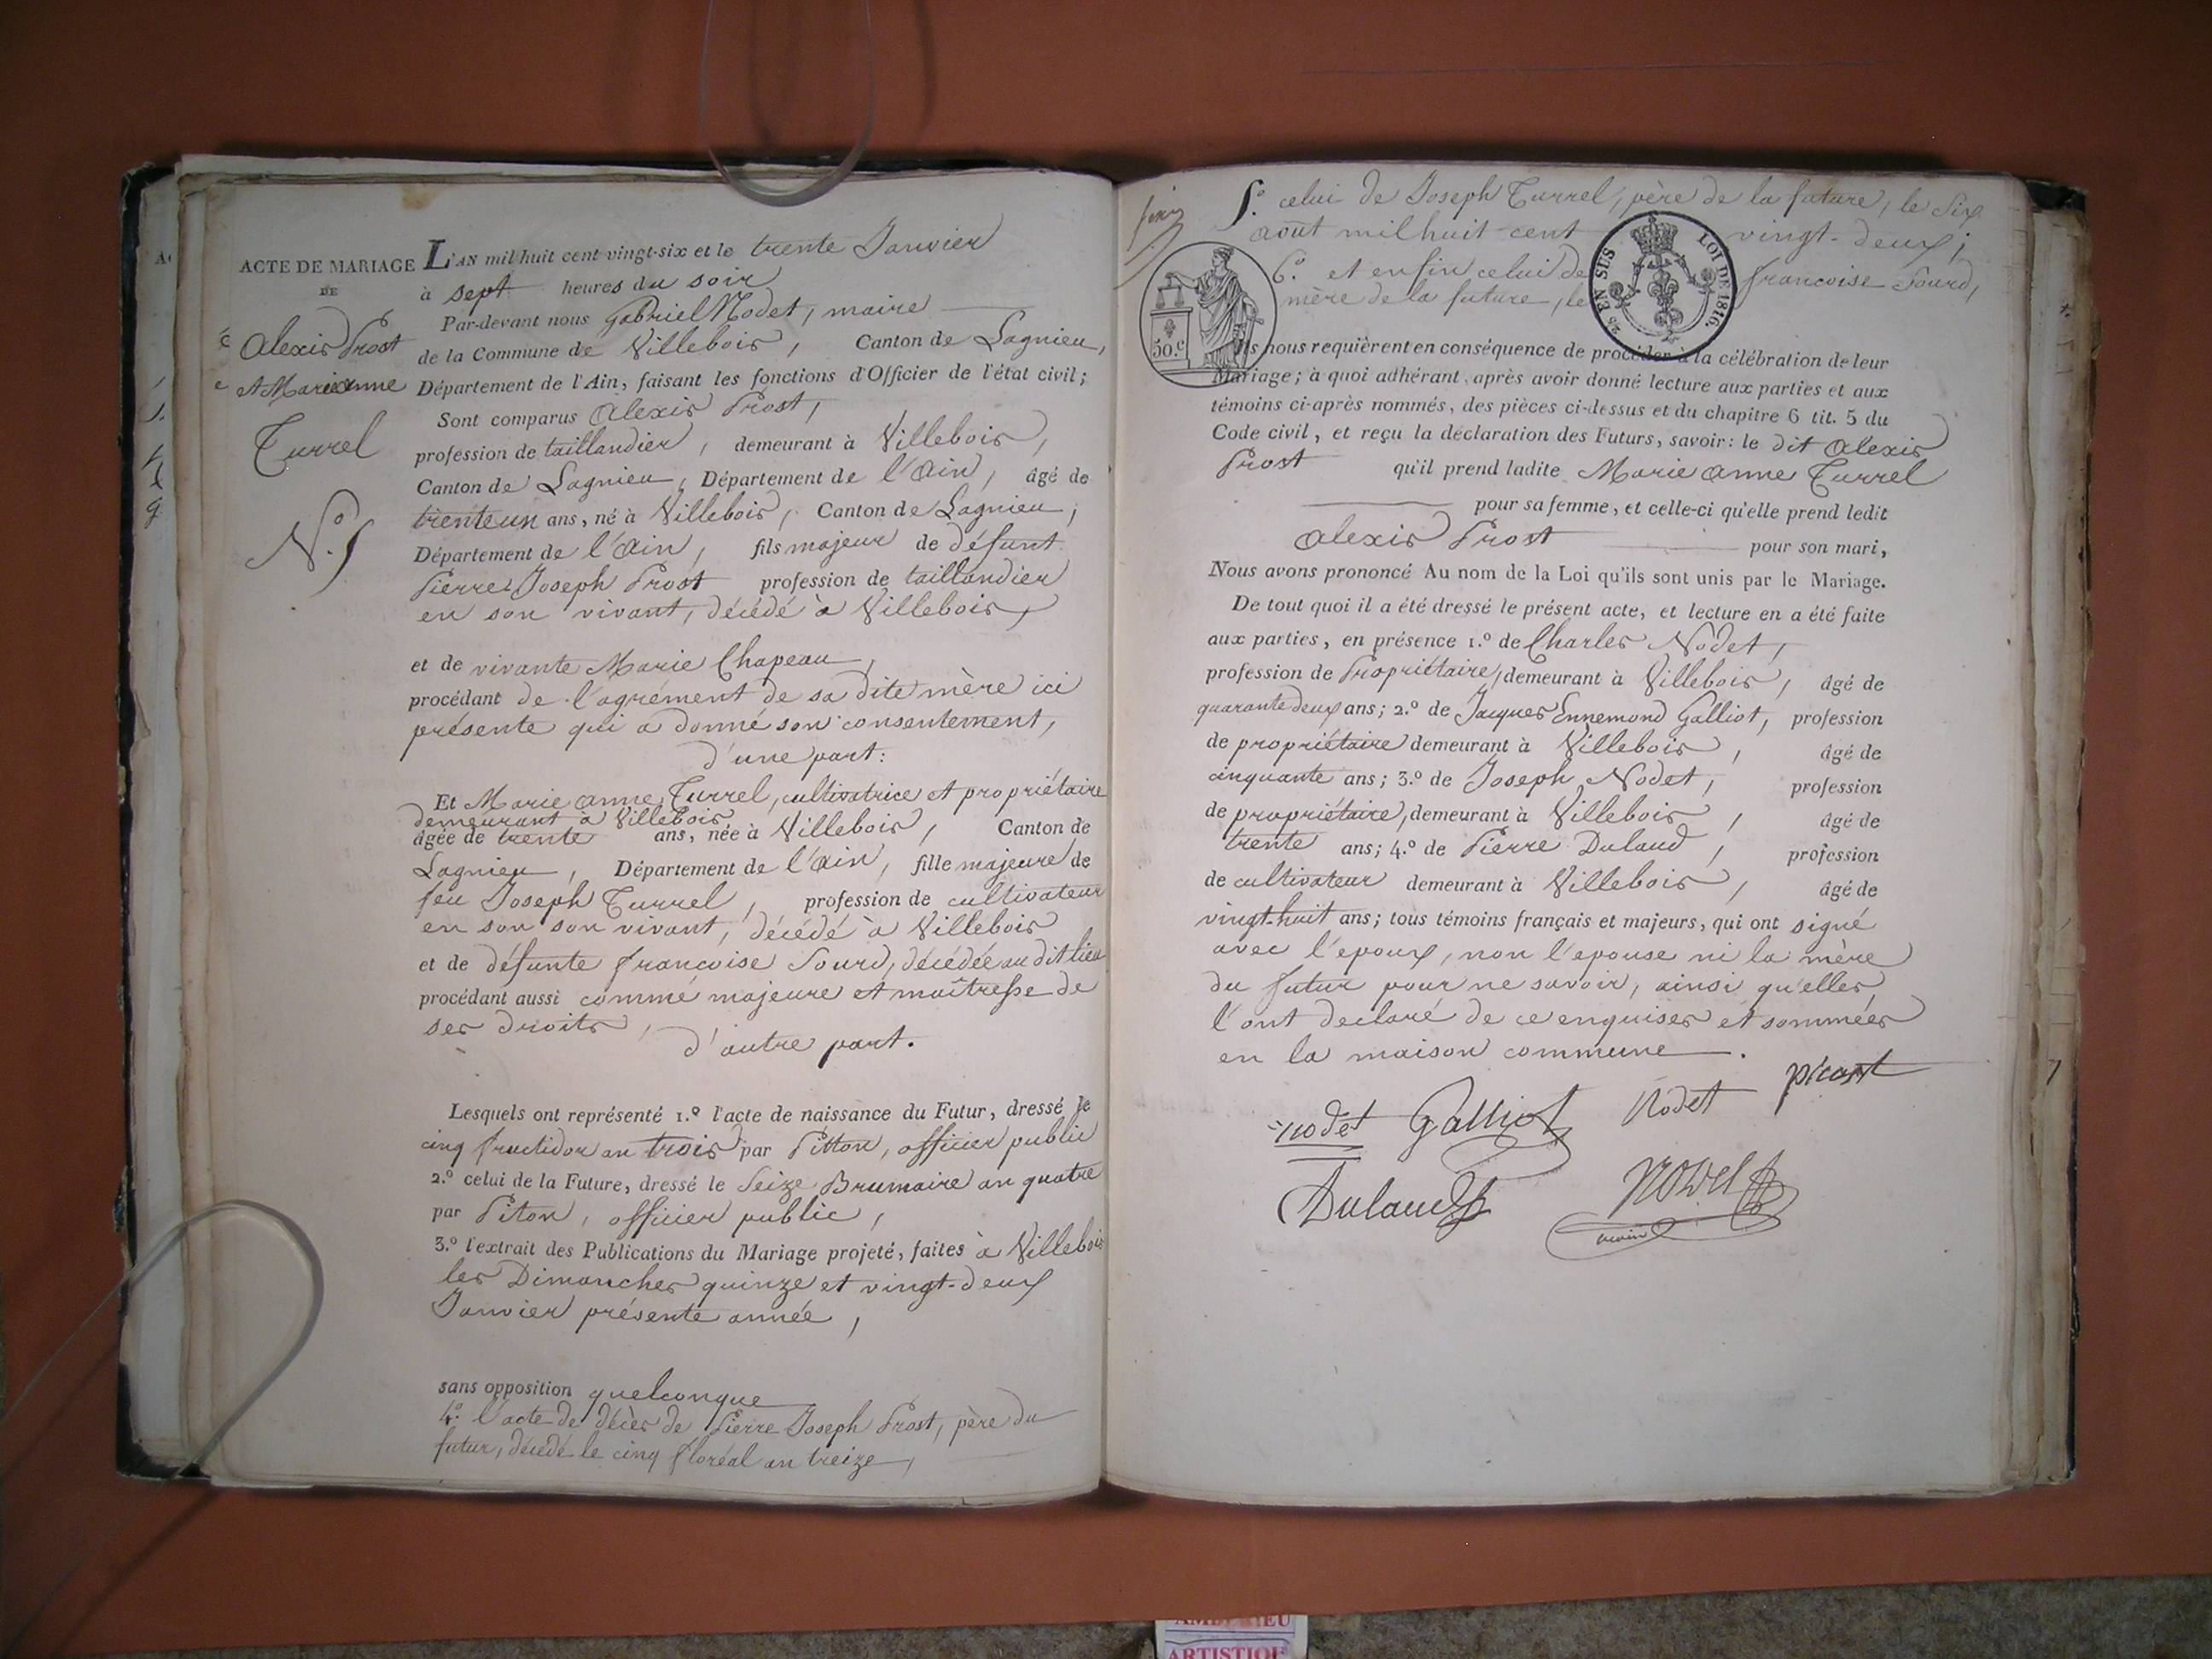 ACTE DE MARIAGE
DE
Alexis Prost
et Marie anne
Turrel
N.° 5
L'AN mil huit cent vingt-six et le trente Janvier
à sept heures du soir
Par-devant nous Gabriel Nodet, maire
de la Commune de Villebois, Canton de Lagnieu,
Département de l'Ain, faisant les fonctions d'Officier de l'état civil;
Sont comparus Alexis Prost,
profession de taillandier, demeurant à Villebois,
Canton de Lagnieu, Département de l'Ain, âgé de
trente un ans, né à Villebois, Canton de Lagnieu,
Département de l'Ain, fils majeur de défunt
Pierre Joseph Prost profession de taillandier
en son vivant, décédé à Villebois,
et de vivante Marie Chapeau,
procédant de l'agrément de sa dite mère ici
présente qui a donné son consentement,
d'une part:
Et Marie anne Turrel, cultivatrice et propriétaire
demeurant à Villebois
âgée de trente ans, née à Villebois, Canton de
Lagnieu, Département de l'Ain, fille majeure de
feu Joseph Turrel, profession de cultivateur
en son son vivant, décédé à Villebois
et de défunte francoise Sourd, décédée au dit lieu
procédant aussi comme majeure et maîtresse de
ses droits,
d'autre part.
Lesquels ont représenté 1.° l'acte de naissance du Futur, dressé le
cinq fructidor an trois par Pitton, officier public
2.° celui de la Future, dressé le Seize Brumaire an quatre
par Piton, officier public,
3.° l'extrait des Publications du Mariage projeté, faites à Villebois
les Dimanches quinze et vingt-deux
Janvier présente année,
sans opposition quelconque
4.° l'acte de décès de Pierre Joseph Prost, père du
futur, décédé le cinq floréal an treize,
5.° celui de Joseph Turrel, père de la future, le Six
août mil huit cent vingt-deux;
6.° et enfin celui de francoise Sourd,
mère de la future, le
50.c
25 EN SUS
LOI DE 1816.
Ils nous requièrent en conséquence de procéder à la célébration de leur
Mariage; à quoi adhérant, après avoir donné lecture aux parties et aux
témoins ci-après nommés, des pièces ci-dessus et du chapitre 6 tit. 5 du
Code civil, et reçu la déclaration des Futurs, savoir: le dit Alexis
Prost qu'il prend ladite Marie anne Turrel
pour sa femme, et celle-ci qu'elle prend ledit
Alexis Prost pour son mari,
Nous avons prononcé Au nom de la Loi qu'ils sont unis par le Mariage.
De tout quoi il a été dressé le présent acte, et lecture en a été faite
aux parties, en présence 1.° de Charles Nodet,
profession de Propriétaire, demeurant à Villebois, âgé de
quarante deux ans; 2.° de Jacques Ennemond Galliot, profession
de propriétaire demeurant à Villebois, âgé de
cinquante ans; 3.° de Joseph Nodet, profession
de propriétaire, demeurant à Villebois, âgé de
trente ans; 4.° de Pierre Dulaud, profession
de cultivateur demeurant à Villebois, âgé de
vingt-huit ans; tous témoins français et majeurs, qui ont signé
avec l'epoux, non l'epouse ni la mère
du futur pour ne savoir, ainsi qu'elles
l'ont declaré de ce enquises et sommées
en la maison commune.
nodet Galliot Nodet
Dulaud
ARTISTIQUE